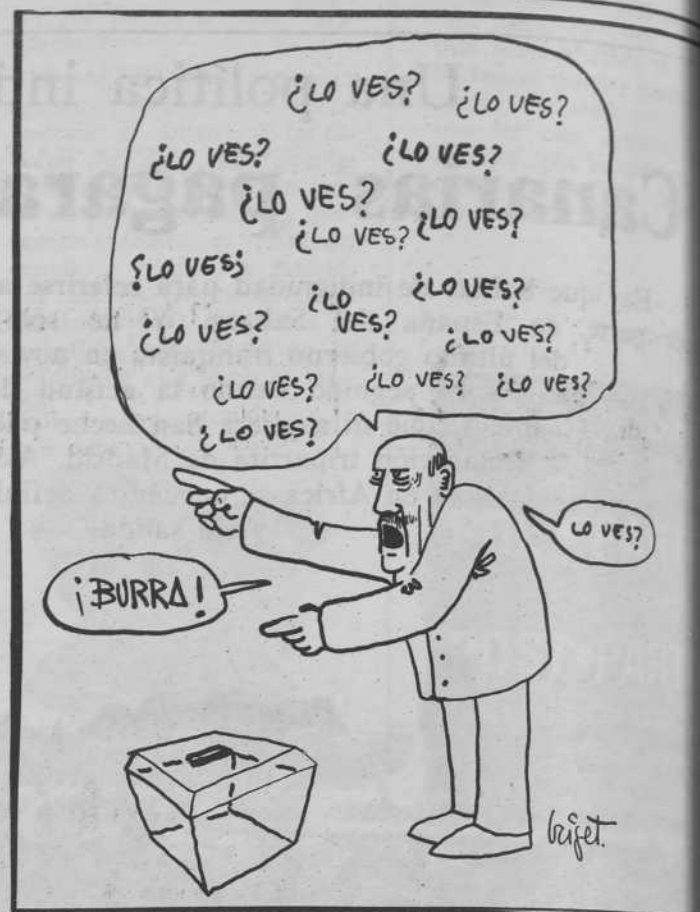 ¿LO VES? ¿LO VES?
¿LO VES? ¿LO VES?
¿LO VES?
¿LO VES? ¿LO VES?
¿LO VES?
¿LO VES? ¿LO VES?
¿LO VES? ¿LO VES?
¿LO VES? ¿LO VES? ¿LO VES?
¿LO VES?
LO VES?
¡BURRA!